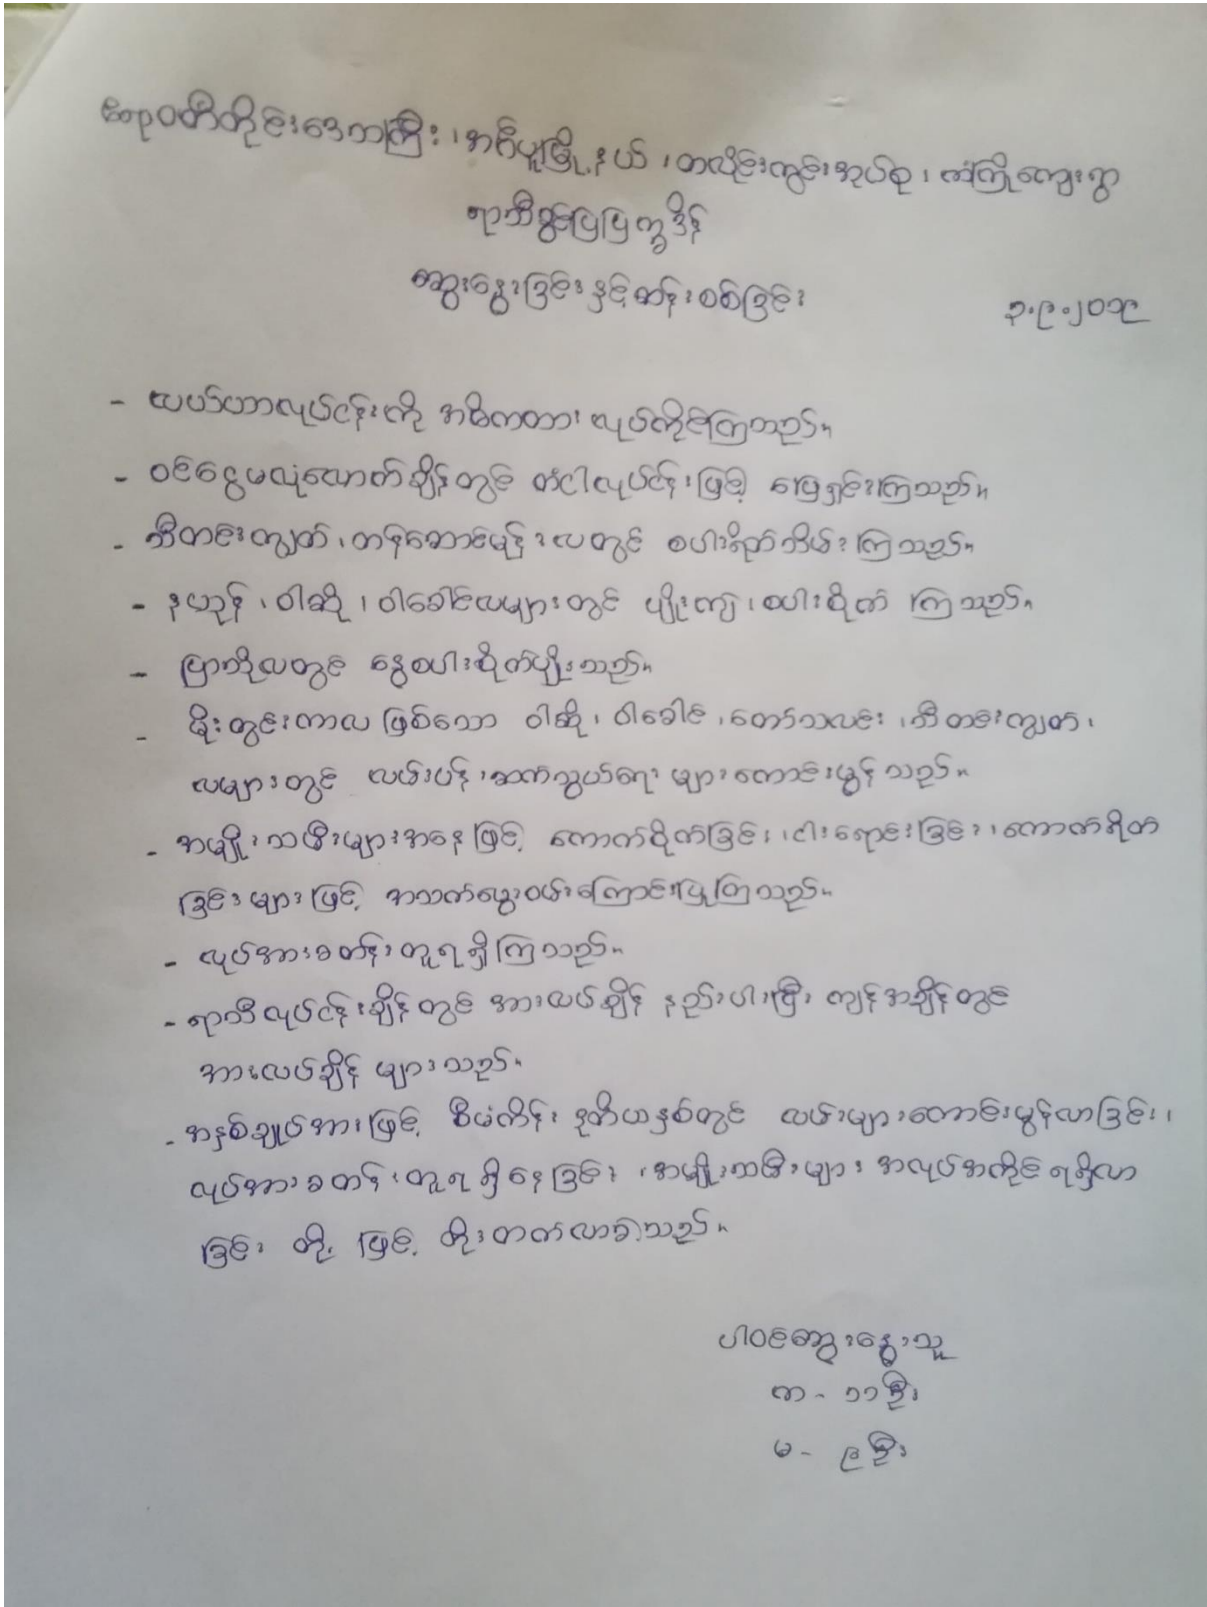 ဧရာဝတီတိုင်းဒေသကြီး၊ အင်္ဂပူမြို့နယ်၊ တလိုင်းကွင်းအုပ်စု၊ ကံကြိုကျေးရွာ
ရာသီခွင်ပြပြက္ခဒိန်
ဆွေးနွေးခြင်းနှင့်ဆန်းစစ်ခြင်း
၃.၉.၂၀၁၉
- လယ်ယာလုပ်ငန်းကို အဓိကထား လုပ်ကိုင်ကြသည်။
- ဝင်ငွေမလုံလောက်ချိန်တွင် တံငါလုပ်ငန်းဖြင့် ဖြေရှင်းကြသည်။
- သီတင်းကျွတ်၊ တန်ဆောင်မုန်းလတွင် စပါးရိတ်သိမ်းကြသည်။
- နယုန်၊ ဝါဆို၊ ဝါခေါင်လများတွင် ပျိုးကျဲ၊ စပါးစိုက် ကြသည်။
- ပြာသိုလတွင် နွေစပါးစိုက်ပျိုးသည်။
- မိုးတွင်းကာလ ဖြစ်သော ဝါဆို၊ ဝါခေါင်၊ တော်သလင်း၊ သီတင်းကျွတ်၊
လများတွင် လမ်းပန်းဆက်သွယ်ရေး များကောင်းမွန်သည်။
- အမျိုးသမီးများအနေဖြင့် ကောက်စိုက်ခြင်း၊ ငါးရောင်းခြင်း၊ ကောက်ရိတ်
ခြင်းများဖြင့် အသက်မွေးဝမ်းကြောင်းပြုကြသည်။
- လုပ်အားခတန်းတူရရှိကြသည်။
- ရာသီလုပ်ငန်းချိန်တွင် အားလပ်ချိန် နည်းပါးပြီး ကျန်အချိန်တွင်
အားလပ်ချိန် များသည်။
- အနှစ်ချုပ်အားဖြင့် စီမံကိန်း ဒုတိယနှစ်တွင် လမ်းများကောင်းမွန်လာခြင်း၊
လုပ်အားခတန်းတူရရှိနေခြင်း၊ အမျိုးသမီးများ အလုပ်အကိုင်ရရှိလာ
ခြင်း တို့ ဖြင့် တိုးတက်လာခဲ့သည်။
ပါဝင်ဆွေးနွေးသူ
ကာ - ၁၁ဦး
မ - ၉ဦး